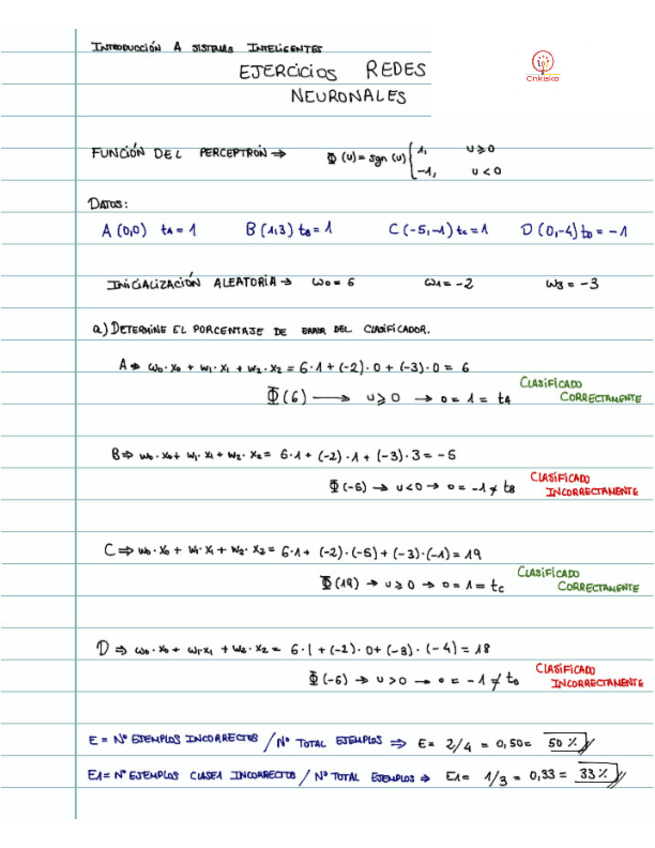 INTRODUCCIÓN A SISTEMAS INTELIGENTES
EJERCICIOS REDES
NEURONALES
FUNCIÓN DEL PERCEPTRÓN ⇒ Φ (u) = sgn (u) { 1, u ⩾ 0
-1, u < 0
DATOS:
A (0,0) tA = 1 B (1,3) tB = 1 C (-5,-1) tc = 1 D (0,-4) tD = -1
INICIALIZACIÓN ALEATORIA → ω0 = 6 ω1 = -2 ω3 = -3
a) DETERMINE EL PORCENTAJE DE ERROR DEL CLASIFICADOR.
A ⇒ ω0 · x0 + ω1 · x1 + ω2 · x2 = 6 · 1 + (-2) · 0 + (-3) · 0 = 6
Φ (6) → u ⩾ 0 → o = 1 = tA CLASIFICADO CORRECTAMENTE
B ⇒ ω0 · x0 + ω1 · x1 + ω2 · x2 = 6 · 1 + (-2) · 1 + (-3) · 3 = -5
Φ (-5) → u < 0 → o = -1 ≠ tB CLASIFICADO INCORRECTAMENTE
C ⇒ ω0 · x0 + ω1 · x1 + ω2 · x2 = 6 · 1 + (-2) · (-5) + (-3) · (-1) = 19
Φ (19) → u ⩾ 0 → o = 1 = tc CLASIFICADO CORRECTAMENTE
D ⇒ ω0 · x0 + ω1 · x1 + ω2 · x2 = 6 · 1 + (-2) · 0 + (-3) · (-4) = 18
Φ (-6) → u > 0 → o = -1 ≠ tD CLASIFICADO INCORRECTAMENTE
E = Nº EJEMPLOS INCORRECTOS / Nº TOTAL EJEMPLOS ⇒ E = 2/4 = 0,50 = 50 %
E1 = Nº EJEMPLOS CLASE1 INCORRECTOS / Nº TOTAL EJEMPLOS ⇒ E1 = 1/3 = 0,33 = 33 %